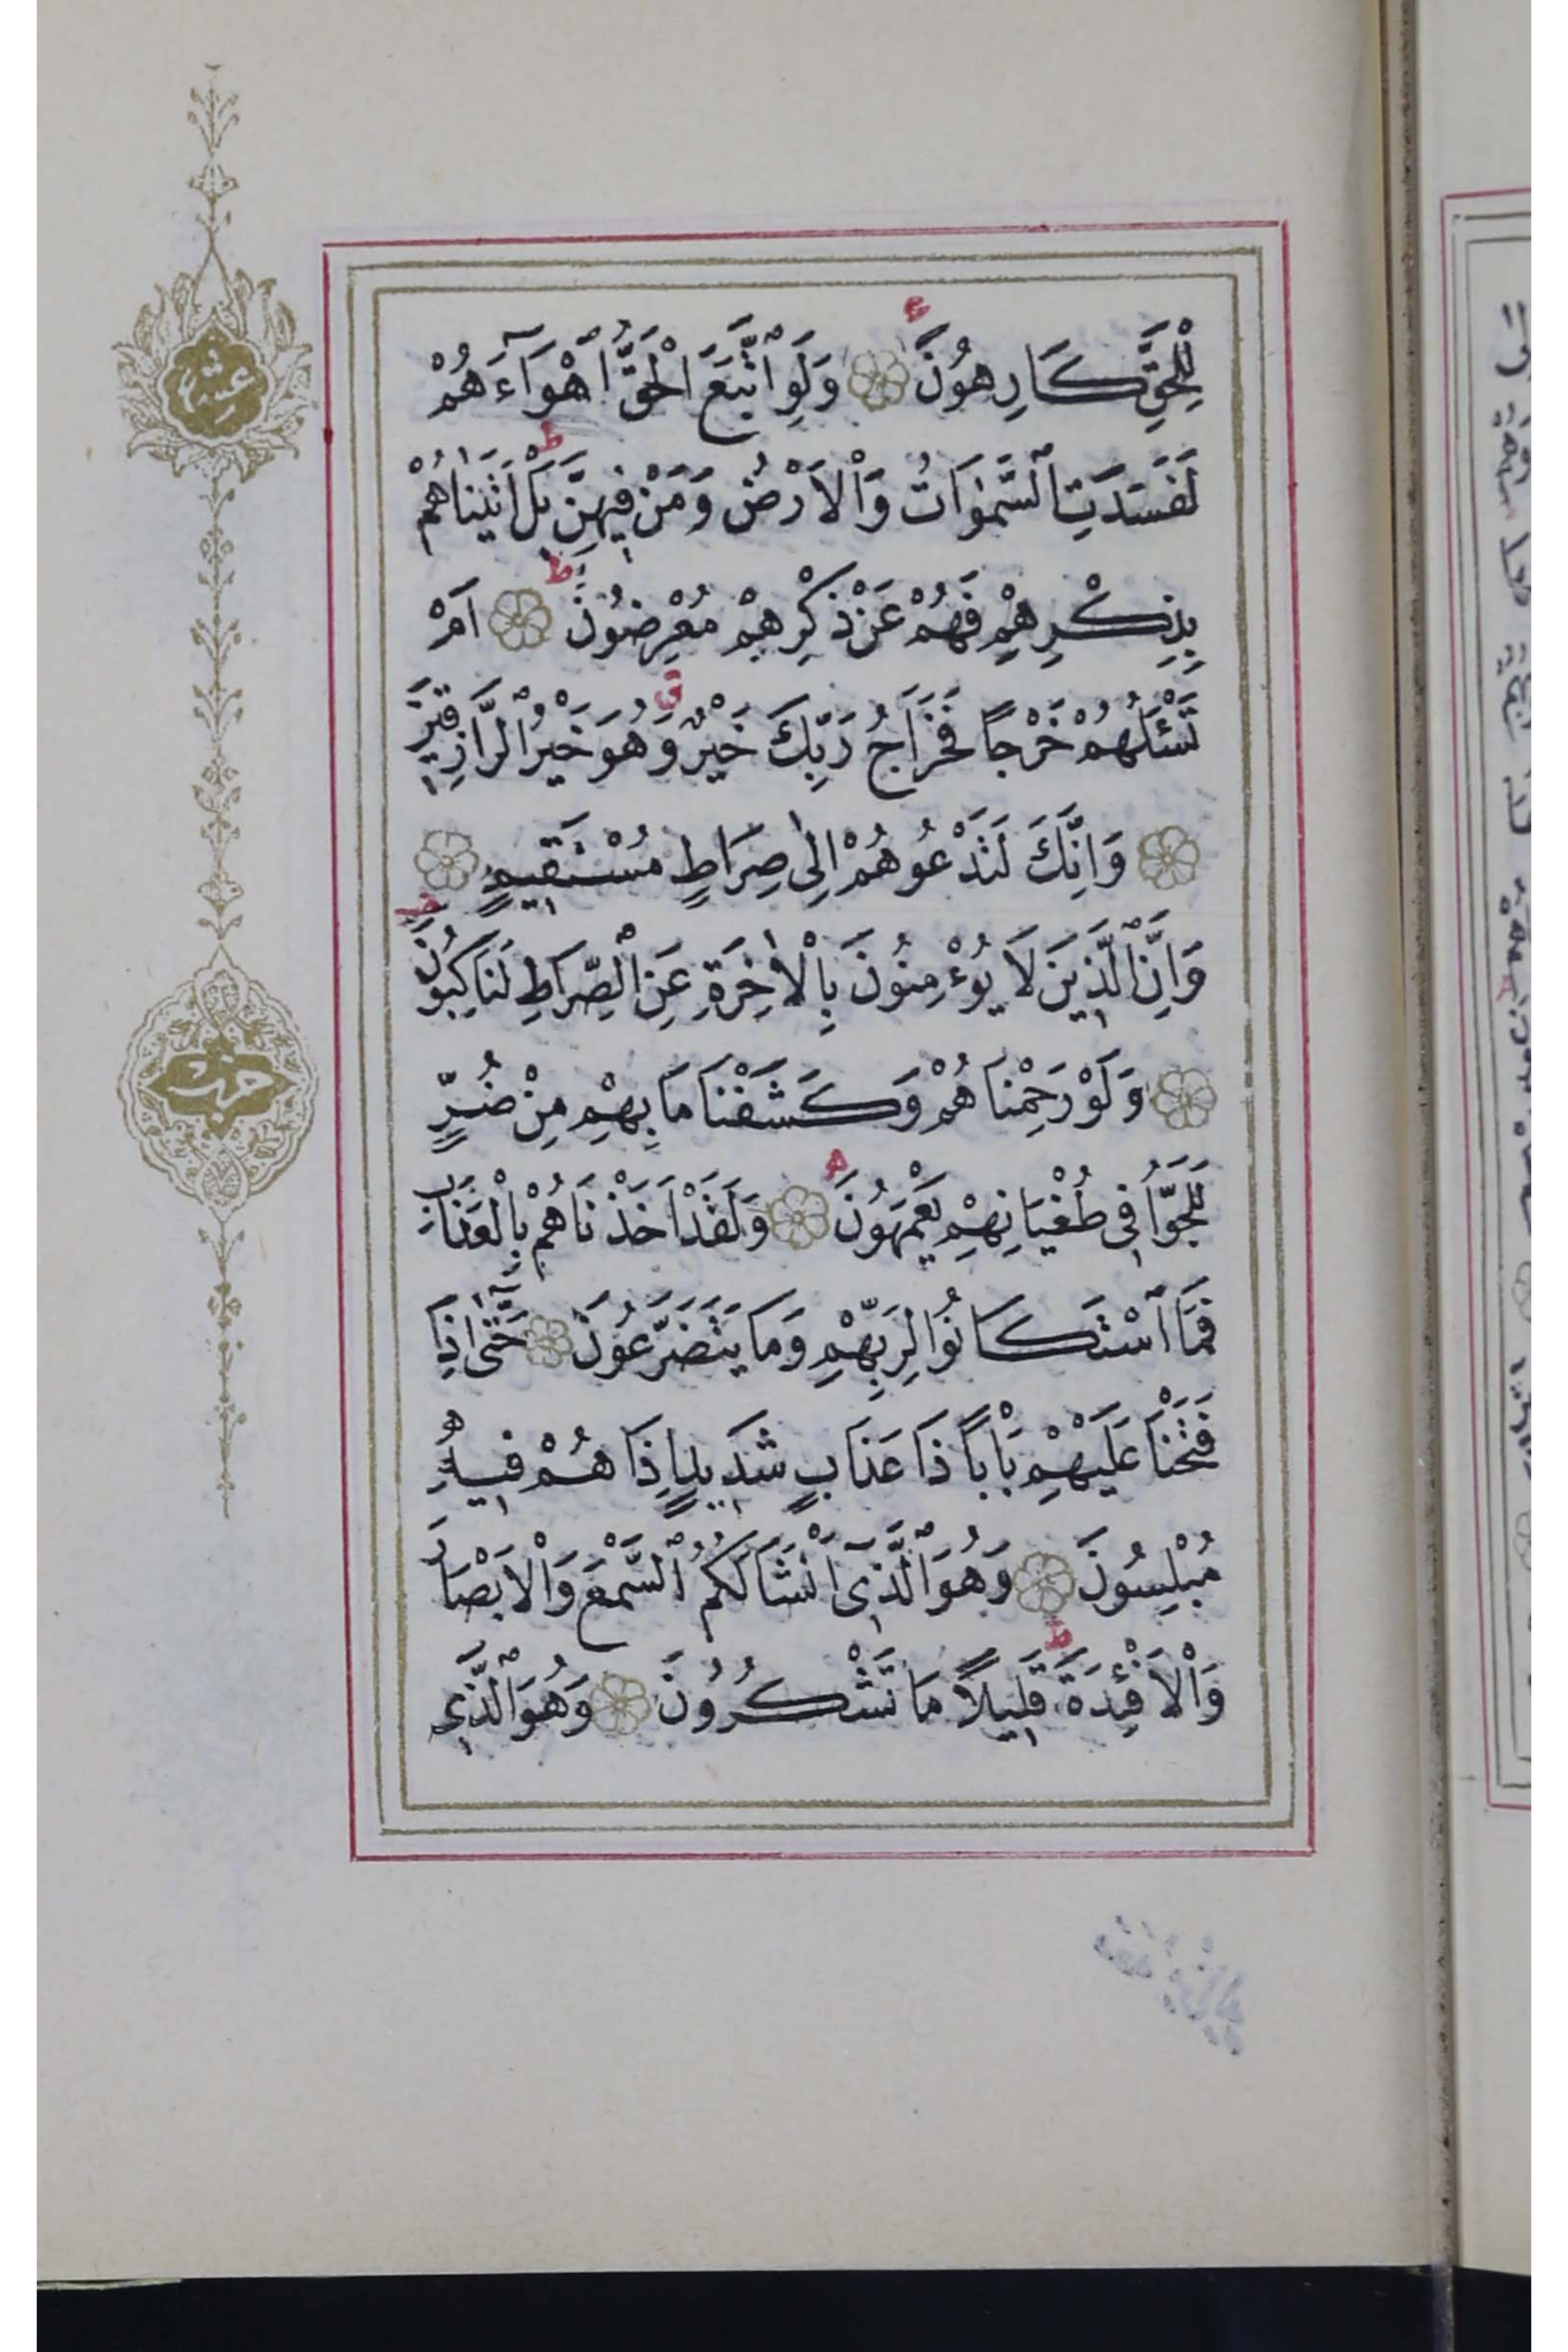 لِلْحَقِّ كَارِهُونَ وَلَوِ اتَّبَعَ الْحَقُّ اَهْوَآءَهُمْ
لَفَسَدَتِ السَّمٰوَاتُ وَالْاَرْضُ وَمَنْ فِيهِنَّ بَلْ اَتَيْنَاهُمْ
بِذِكْرِهِمْ فَهُمْ عَنْ ذِكْرِهِمْ مُعْرِضُونَ اَمْ
تَسْئَلُهُمْ خَرْجًا فَخَرَاجُ رَبِّكَ خَيْرٌ وَهُوَ خَيْرُ الرَّازِقِينَ
وَاِنَّكَ لَتَدْعُوهُمْ اِلٰى صِرَاطٍ مُسْتَقِيمٍ
وَاِنَّ الَّذِينَ لَا يُؤْمِنُونَ بِالْاٰخِرَةِ عَنِ الصِّرَاطِ لَنَاكِبُونَ
وَلَوْ رَحِمْنَاهُمْ وَكَشَفْنَا مَا بِهِمْ مِنْ ضُرٍّ
لَلَجُّوا فِى طُغْيَانِهِمْ يَعْمَهُونَ وَلَقَدْ اَخَذْنَاهُمْ بِالْعَذَابِ
فَمَا اسْتَكَانُوا لِرَبِّهِمْ وَمَا يَتَضَرَّعُونَ حَتّٰٓى اِذَا
فَتَحْنَا عَلَيْهِمْ بَابًا ذَا عَذَابٍ شَدِيدٍ اِذَا هُمْ فِيهِ
مُبْلِسُونَ وَهُوَ الَّذِىٓ اَنْشَاَ لَكُمُ السَّمْعَ وَالْاَبْصَارَ
وَالْاَفْئِدَةَ قَلِيلًا مَا تَشْكُرُونَ وَهُوَ الَّذِى
عشر
حزب